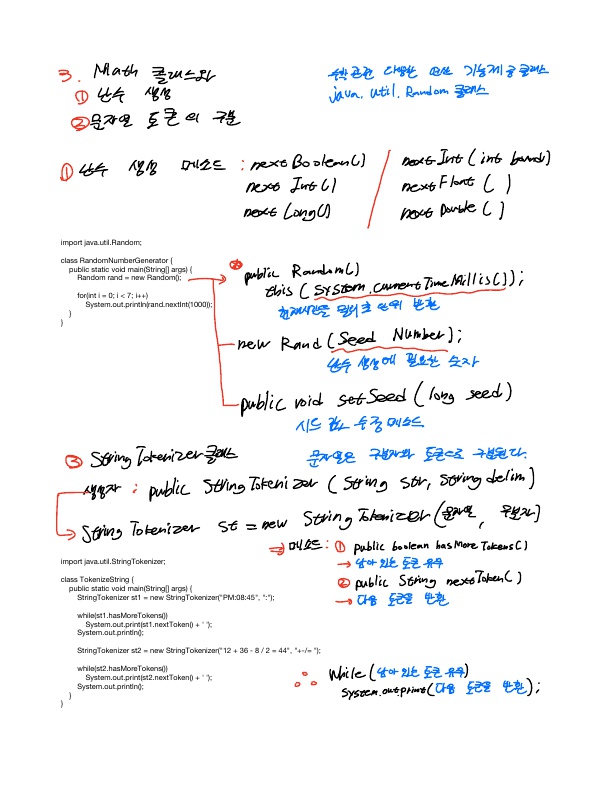 3. Math 클래스와
① 난수 생성
② 문자열 토큰의 구분
수학 관련 다양한 연산 기능 제공 클래스
java.util.Random 클래스
① 난수 생성 메소드 : nextBoolean()
nextInt()
nextLong()
nextInt(int bound)
nextFloat()
nextDouble()
import java.util.Random;
class RandomNumberGenerator {
public static void main(String[] args) {
Random rand = new Random();
for(int i = 0; i < 7; i++)
System.out.println(rand.nextInt(1000));
}
}
public Random()
this(System.currentTimeMillis());
현재시간을 밀리초 단위 반환
new Rand(Seed Number);
난수 생성에 필요한 숫자
public void setSeed(long seed)
시드 값 수정 메소드
③ StringTokenizer 클래스
문자열은 구분자와 토큰으로 구분된다.
생성자 : public StringTokenizer (String str, String delim)
StringTokenizer st = new StringTokenizer(문자열, 구분자)
→ 메소드 : ① public boolean hasMoreTokens()
→ 남아 있는 토큰 유무
② public String nextToken()
→ 다음 토큰을 반환
import java.util.StringTokenizer;
class TokenizeString {
public static void main(String[] args) {
StringTokenizer st1 = new StringTokenizer("PM:08:45", ":");
while(st1.hasMoreTokens())
System.out.print(st1.nextToken() + ' ');
System.out.println();
StringTokenizer st2 = new StringTokenizer("12 + 36 - 8 / 2 = 44", "+-/= ");
while(st2.hasMoreTokens())
System.out.print(st2.nextToken() + ' ');
System.out.println();
}
}
∴ While(남아 있는 토큰 유무)
System.out.print(다음 토큰을 반환);